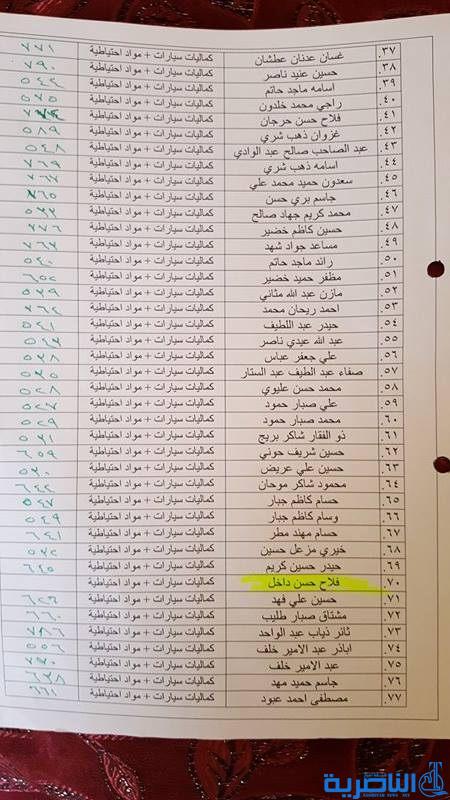 ٣٧. غسان عدنان عطشان كماليات سيارات + مواد احتياطية ٧٧١
٣٨. حسين عنيد ناصر كماليات سيارات + مواد احتياطية ٧٩٠
٣٩. اسامه ماجد حاتم كماليات سيارات + مواد احتياطية
٤٠. راجي محمد خلدون كماليات سيارات + مواد احتياطية ٥٧٥
٤١. فلاح حسن حرجان كماليات سيارات + مواد احتياطية
٤٢. غزوان ذهب شري كماليات سيارات + مواد احتياطية ٥٨٩
٤٣. عبد الصاحب صالح عبد الوادي كماليات سيارات + مواد احتياطية ٥٤٨
٤٤. اسامه ذهب شري كماليات سيارات + مواد احتياطية ٧٦٩
٤٥. سعدون حميد محمد علي كماليات سيارات + مواد احتياطية ٧٦٧
٤٦. جاسم بري حسن كماليات سيارات + مواد احتياطية ٧٦٥
٤٧. محمد كريم جهاد صالح كماليات سيارات + مواد احتياطية
٤٨. حسين كاظم خضير كماليات سيارات + مواد احتياطية ٧٧٦
٤٩. مساعد جواد شهد كماليات سيارات + مواد احتياطية
٥٠. رائد ماجد حاتم كماليات سيارات + مواد احتياطية ٥٤٠
٥١. مظفر حميد خضير كماليات سيارات + مواد احتياطية
٥٢. مازن عبد الله مثاني كماليات سيارات + مواد احتياطية
٥٣. احمد ريحان محمد كماليات سيارات + مواد احتياطية
٥٤. حيدر عبد اللطيف كماليات سيارات + مواد احتياطية ٥٤١
٥٥. عبد الله عيدي ناصر كماليات سيارات + مواد احتياطية
٥٦. علي جعفر عباس كماليات سيارات + مواد احتياطية
٥٧. صفاء عبد الطيف عبد الستار كماليات سيارات + مواد احتياطية
٥٨. محمد حسن عليوي كماليات سيارات + مواد احتياطية
٥٩. علي صبار حمود كماليات سيارات + مواد احتياطية
٦٠. محمد صبار حمود كماليات سيارات + مواد احتياطية
٦١. ذو الفقار شاكر بريج كماليات سيارات + مواد احتياطية
٦٢. حسين شريف حوني كماليات سيارات + مواد احتياطية ٦٥٩
٦٣. حسين علي عريض كماليات سيارات + مواد احتياطية
٦٤. محمود شاكر موحان كماليات سيارات + مواد احتياطية
٦٥. حسام كاظم جبار كماليات سيارات + مواد احتياطية ٥٤٧
٦٦. وسام كاظم جبار كماليات سيارات + مواد احتياطية ٥٤٩
٦٧. حسام مهند مطر كماليات سيارات + مواد احتياطية ٦٤١
٦٨. خيري مزعل حسين كماليات سيارات + مواد احتياطية
٦٩. حيدر حسين كريم كماليات سيارات + مواد احتياطية ٦٤٥
٧٠. فلاح حسن داخل كماليات سيارات + مواد احتياطية
٧١. حسين علي فهد كماليات سيارات + مواد احتياطية
٧٢. مشتاق صبار طليب كماليات سيارات + مواد احتياطية ٦٦٠
٧٣. ثائر ذياب عبد الواحد كماليات سيارات + مواد احتياطية ٧٨٦
٧٤. اباذر عبد الامير خلف كماليات سيارات + مواد احتياطية ٥٥٦
٧٥. عبد الامير خلف كماليات سيارات + مواد احتياطية
٧٦. جاسم حميد مهد كماليات سيارات + مواد احتياطية
٧٧. مصطفى احمد عبود كماليات سيارات + مواد احتياطية ٦٦١
الناصرية